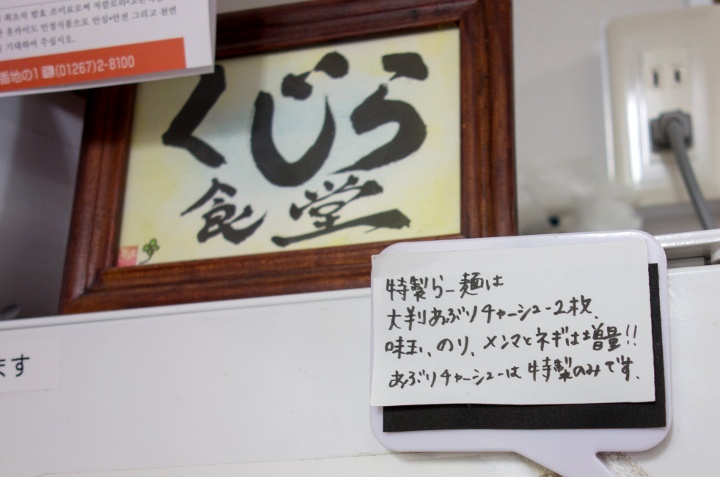 저칼로리
한 홋카이도 인정식품으로 안심•안전 그리고 천연
를 기대하여 주십시오.
番地の1 (01267)2-8100
くじら
食堂
ます
特製らー麺は
大判あぶりチャーシュー2枚、
味玉、のり、メンマとネギは増量!!
あぶりチャーシューは特製のみです。